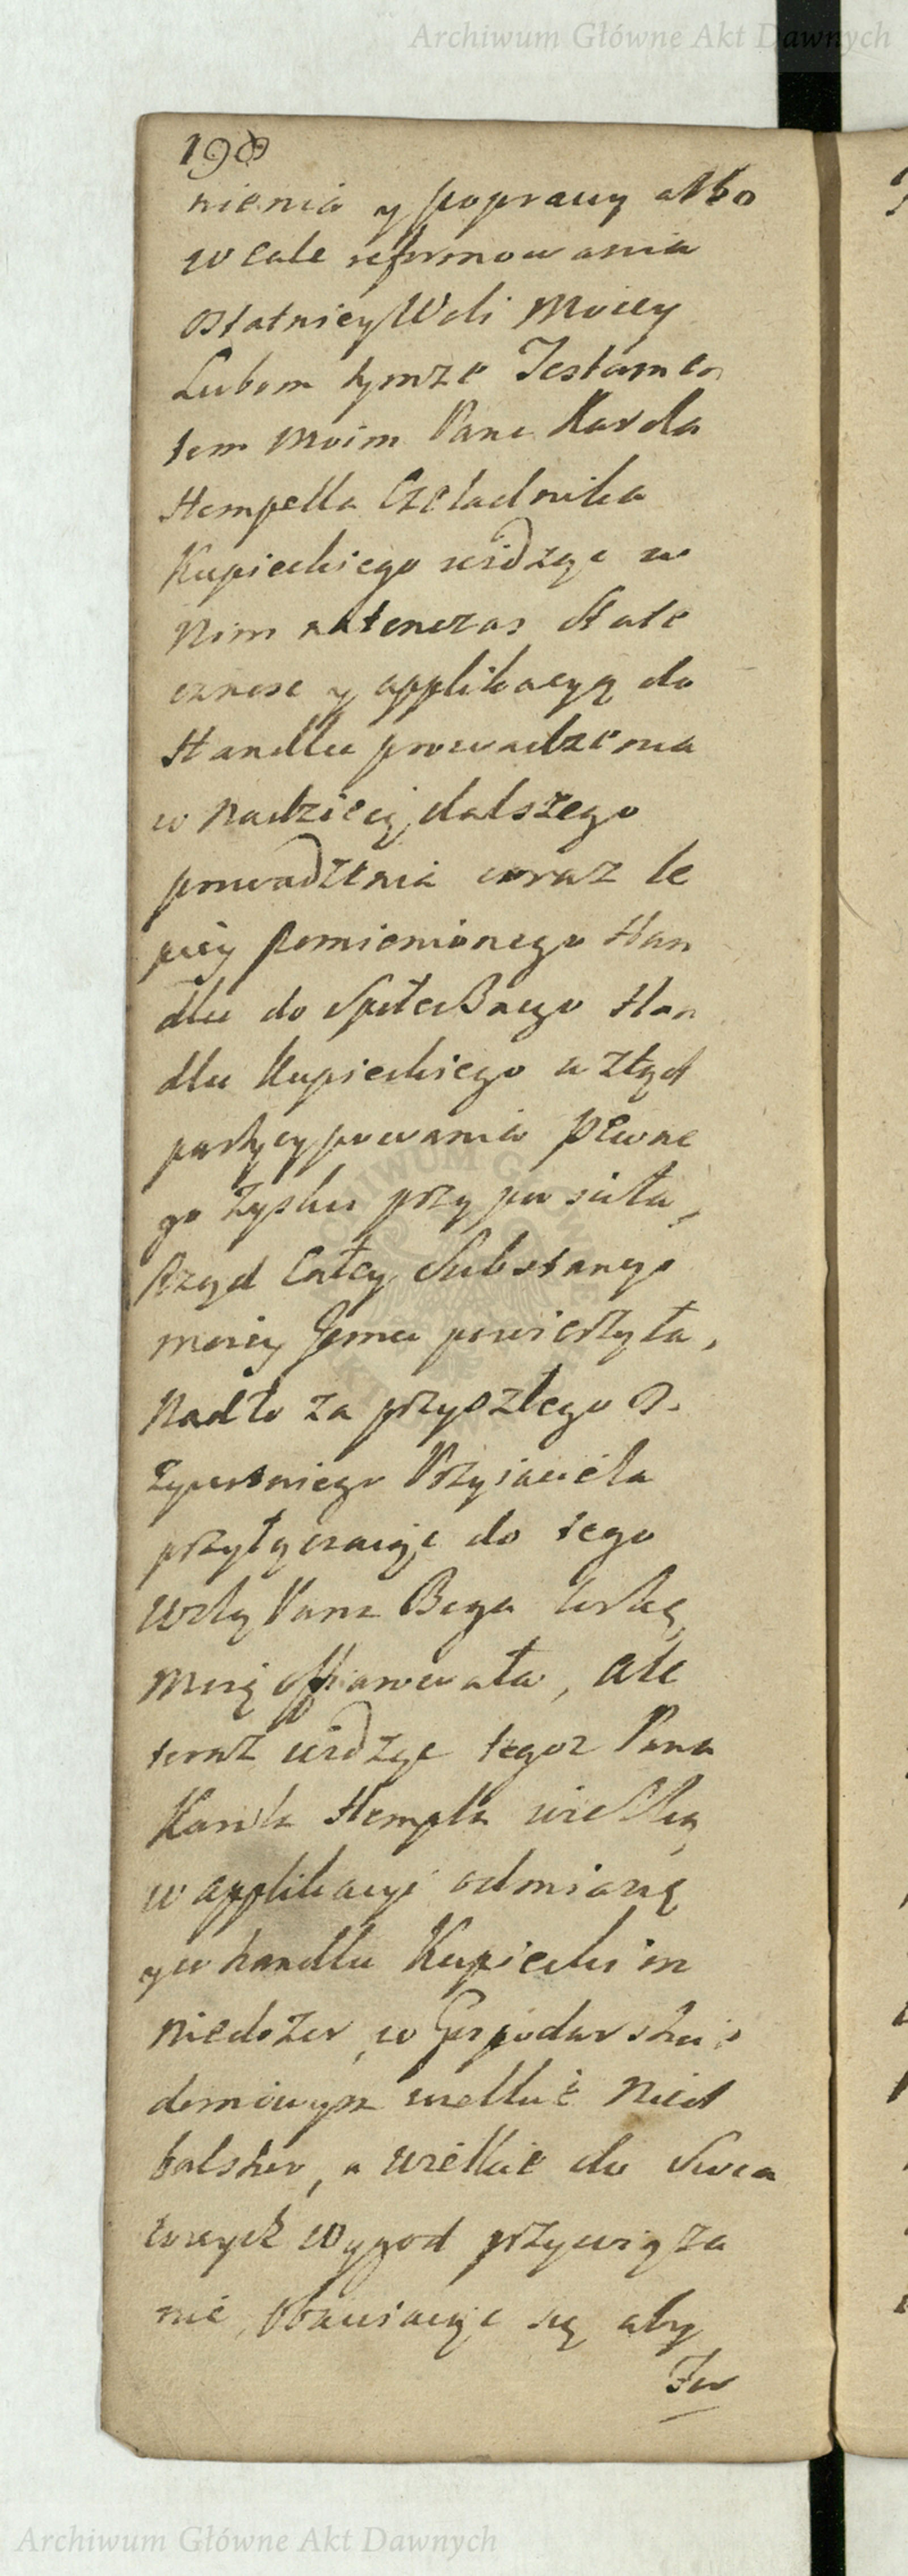 Archiwum Główne Akt Dawnych
190
nienia y poprawy albo
w cale reformowania
Ostatniey Woli Moiey
Lubom tymze Testamen
tem Moim Pana Karola
Hempella Czeladnika
Kupieckiego widząc w
Nim natenczas State
cznosc y applikacyą do
Handlu prowadzenia
w Nadzieię dalszego
prowadzenia coraz le
piey pomienionego Han
dlu do Społecznego Han
dlu Kupieckiego a ztąd
partycypowania pewne
go Zysku przypusciła,
Rząd Całey Substancyi
moiey Jemu powierzyła,
Nadto za przyszłego D.
Zywotniego Przyiaciela
przyłączaiąc do tego
Wolą Pana Boga Rękę
Moię offiarowała, Ale
teraz widząc tegoz Pana
Karola Hempla wielką
w applikacyi odmianę
y w handlu Kupieckim
Niedozor, w Gospodarstwie
domowym wielkie Nied
balstwo, a wielkie do Swia
towych Wygod przywiąza
nie, obawiaiąc się aby
Archiwum Główne Akt Dawnych